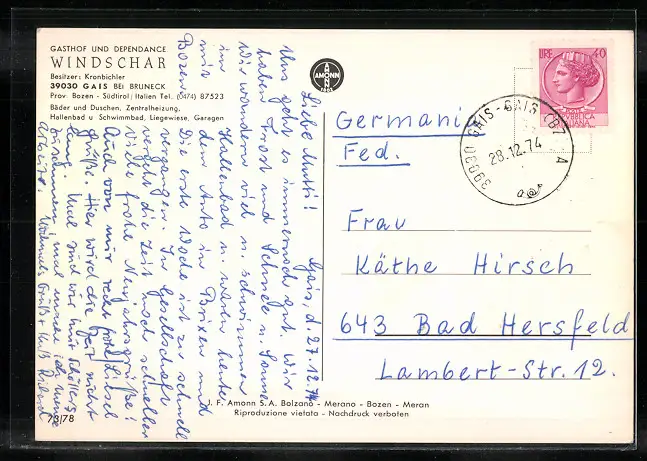 GASTHOF UND DEPENDANCE
WINDSCHAR
Besitzer: Kronbichler
39030 GAIS BEI BRUNECK
Prov. Bozen - Südtirol/Italien Tel. (0474) 87523
Bäder und Duschen, Zentralheizung,
Hallenbad u Schwimmbad, Liegewiese, Garagen
AMONN
LIRE 40
POSTE
REPUBBLICA
ITALIANA
39030 GAIS-GAIS (BZ)
28.12.74
A
Germania
Fed.
Frau
Käthe Hirsch
643 Bad Hersfeld
Lambert-Str. 12.
Gais, d. 27.12.74
Liebe Mutti!
Uns geht es immernoch gut. Wir
haben Frost und Schnee u. Sonne
Wir wandern viel u. schwimmen
im Hallenbad u. waren heute
mit dem Auto in Brixen und
Bozen. Die erste Woche ist so schnell
vergangen. In Gesellschaft
vergeht die Zeit noch schneller
Viele frohe Neujahrsgrüße!
Auch von mir recht frohe
Grüße. Hier wird die Zeit nicht
lang. Mal sind wir mit
zusammen, mal
J. F. Amonn S.A. Bolzano - Merano - Bozen - Meran
Riproduzione vietata - Nachdruck verboten
78/78